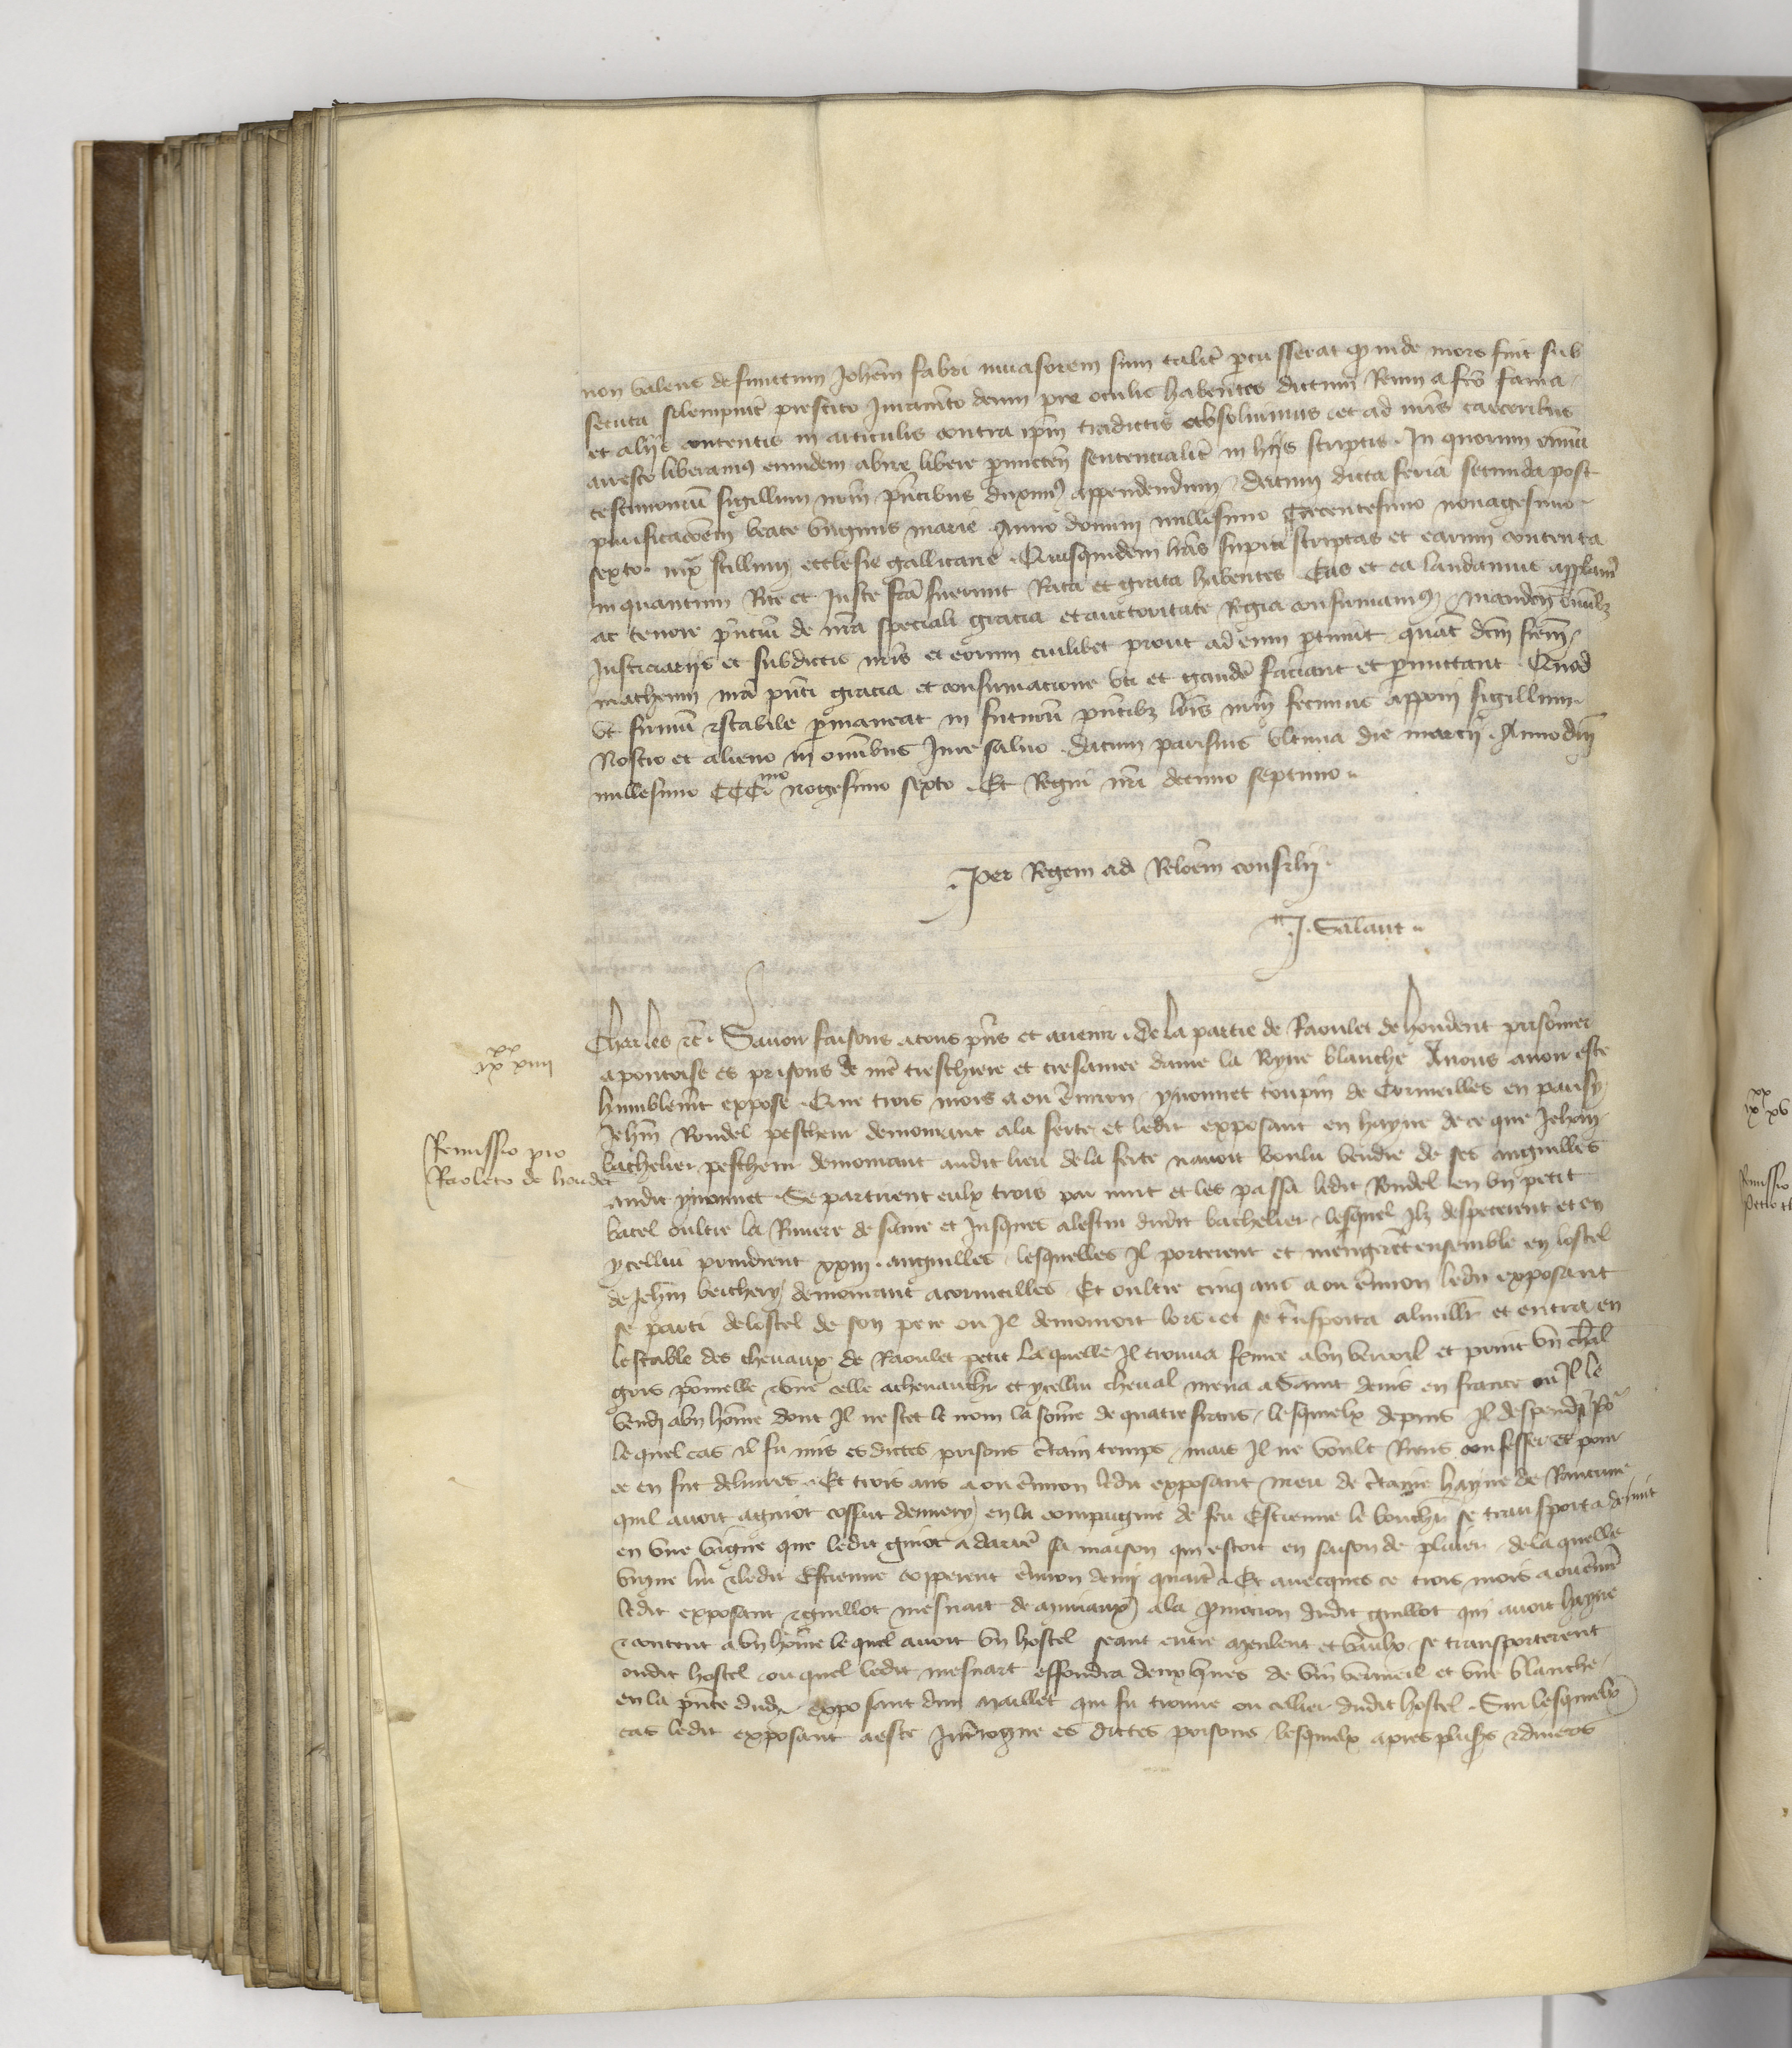 non valens defunctum Johem fabri invasorem suum talit percusserat qd inde mors fuit sub
secuta solempnit prestito Juramto deum pre oculis habentes dictum Reum a fco fama
et alijs contentis in articulis contra ipm tradictis absoluimus et ad nris carceribus
aresto liberamus eumdem abire libere pmicten sentencialit in hijs scriptis In quorum omniu
testimoniu sigillum nrm pntibus duximus appendendum Datum dicta feria secunda post
purificacoem beate virginis marie Anno domini millesimo Trecentesimo nonagesimo
sexto iux stillum ecclesie gallicane Quasquidem lras supra scriptas et earum contenta
in quantum Rite et Juste fca fuerunt Rata et grata habentes Eas et ea laudamus approbam
ac tenore pncium de nra speciali gracia et auctoritate Regia confirmamus Manden omibz
Justiciarijs et subdictis nris et eorum cuilibet prout ad eum ptinuit quat dcm firem
matheum nra pnti gracia et confirmacione vti et gaudere faciant et pmittant Quod
vt firmu et stabile pmaneat in futuru pntibz lris nrm fecimus apponi sigillum
Nostro et alieno in omnibus Jure saluo Datum parisius vltima die marcij Anno dni
millesimo CCCmo nogesimo sexto Et Regni nri decimo septimo
Per Regem ad Reloem consilij
J. Salaut
Charles etc. Sauoir faisons atous pns et auenir De la partie de Raoulet de houdent prisonier
a pontoise es prisons de nre treschiere et tresamee dame la Royne blanche Anous auoir este
humblemt expose Que trois mois a ou enuiron ynonnet toupin de Cormeilles en parisy
Jehn Rondel pescheur demourant ala ferte et ledit exposant en hayne de ce que Jehan
bachelier pescheur demourant audit lieu de la ferte nauoit voulu vendre de ses anguilles
audit ynonnet Se partirent eulx trois par nuit et les passa ledit Rondel en vn petit
batel oultre la Riuiere de saine et Jusques alestui dudit bachelier lesquel Ilz despecerent et en
ycellui prindrent xxiii anguilles lesquelles Il porterent et mengeret ensemble en lostel
de Jehn berthery demourant acormeilles Et oultre cinq ans a ou enuiron ledit exposant
se parti delostel de son pere ou Il demouroit lors et se tnsporta et entra en
lestable des cheuaux de Raoulet petit Laquelle Il trouua fermee a vn verroil et print vn chal
gris pomelle et vne celle acheuaucher et ycellui cheual mena a Saint denis en france ou Il le
vendi a vn home dont Il ne scet le nom la some de quatre frans lesquelx depuis Il despendi po
lequel cas il fu mis es dictes prisons certain temps mais Il ne voult Riens confesser et pour
ce en fut deliures Et trois ans a ou enuiron ledit exposant meu de certaine hayne de Rancune
quil auoit aguiot cossart en la compagnie de feu Estienne le bouchier se transporta denuit
en vne vigne que ledit guiot a dariere sa maison qui estoit en saison de plaier de laquelle
vigne lui et ledit Estienne copperent enuiron demi quartr Et auecques ce trois mois a ou enuiron
ledit exposant et guillot mesnart de ala pmocion dudit guillot qui auoit hayne
et content a vn home lequel auoit vn hostel seant entre meulent et vaulx se transporterent
oudit hostel ouquel ledit mesnart effondra deux queues de vin vermeil et vne blanche
en la pnce dudit exposant dun maillet qui fu trouue ou cellier dudit hostel Sur lesquelx
cas ledit exposant aeste Jnterrogue es dictes prisons lesquelx apres plusrs et diuers
ix xx xiiii
Remissio pro
Raoleto de houdet
ix xx xv
Remissio